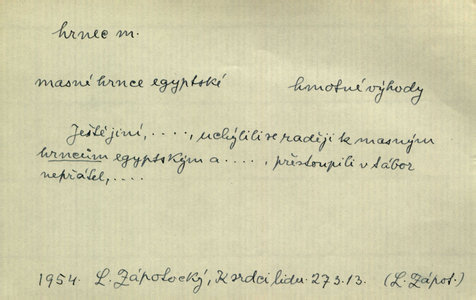 hrnec m.
masné hrnce egyptské hmotné výhody
Ještě jiní, ...., uchýlili se raději k masným
hrncům egyptským a ...., přestoupili v tábor
nepřátel, ....
1954. L. Zápotocký, K srdci lidu. 273.13. (L. Zápot.)